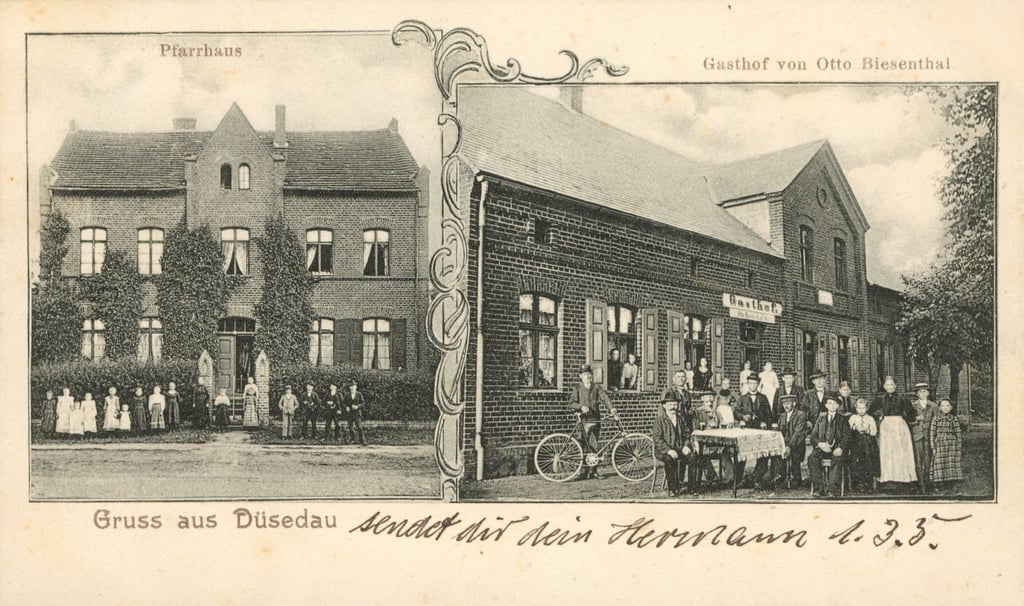 Pfarrhaus
Gasthof von Otto Biesenthal
Gasthof.
Gruss aus Düsedau sendet dir dein Hermann 1. 3. 5.